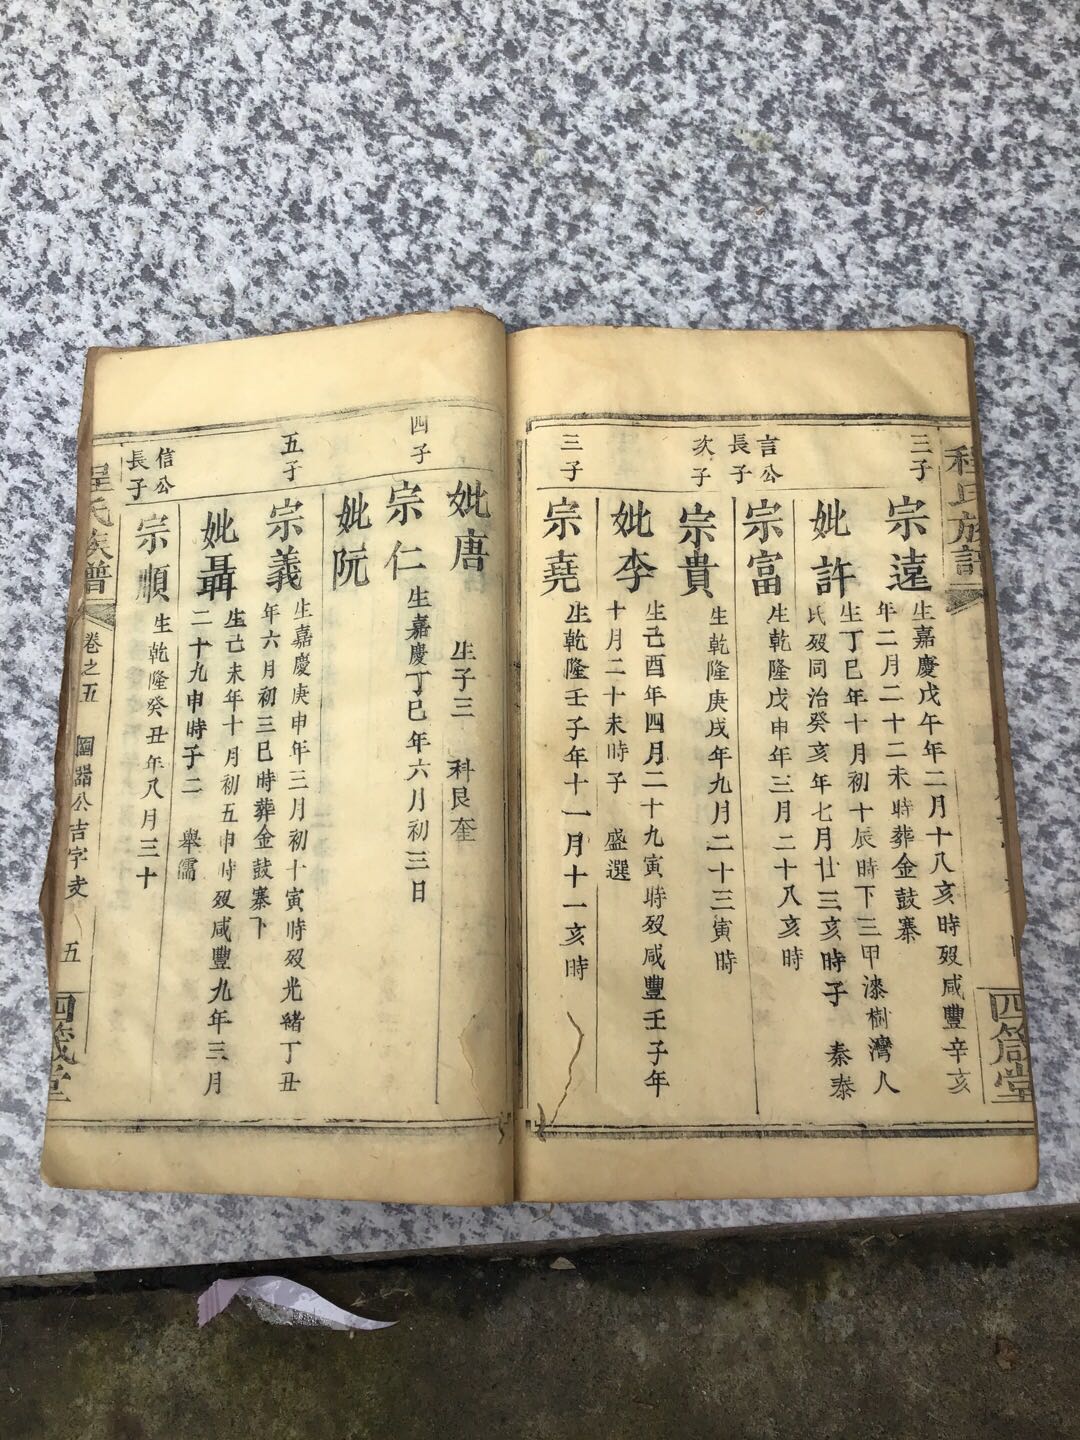 程氏族譜
四箴堂
三子
宗遠
生嘉慶戊午年二月十八亥時歿咸豐辛亥
年二月二十二未時葬金鼓寨
妣許
生丁巳年十月初十辰時下三甲漆樹灣人
氏歿同治癸亥年七月廿三亥時子 秦泰
言公
長子
宗富
生乾隆戊申年三月二十八亥時
次子
宗貴
生乾隆庚戌年九月二十三寅時
妣李
生己酉年四月二十九寅時歿咸豐壬子年
十月二十未時子 盛選
三子
宗堯
生乾隆壬子年十一月十一亥時
妣唐
生子三 科良奎
四子
宗仁
生嘉慶丁巳年六月初三日
妣阮
五子
宗義
生嘉慶庚申年三月初十寅時歿光緒丁丑
年六月初三巳時葬金鼓寨下
妣聶
生己未年十月初五申時歿咸豐九年三月
二十九申時子二 舉儒
信公
長子
宗順
生乾隆癸丑年八月三十
程氏族譜
卷之五
公吉字支
五
四箴堂